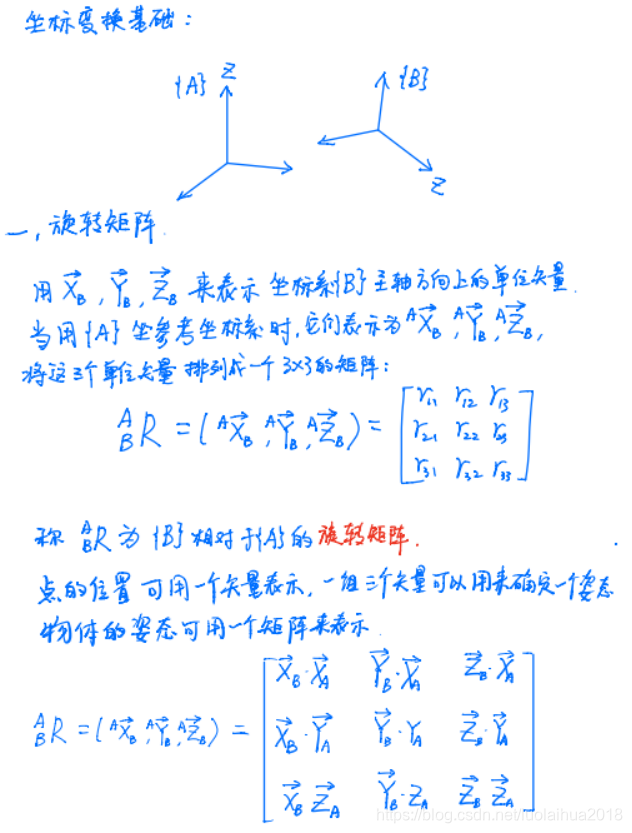 坐标变换基础:
{A} Z {B}
Z
一, 旋转矩阵.
用 X⃗_B, Y⃗_B, Z⃗_B 来表示 坐标系{B}主轴方向上的单位矢量.
当用{A} 坐参考坐标系时, 它们表示为 ᴬX⃗_B, ᴬY⃗_B, ᴬZ⃗_B,
将这3个单位矢量 排列成一个 3x3的矩阵:
ᴬ_BR = (ᴬX⃗_B, ᴬY⃗_B, ᴬZ⃗_B) = [ r₁₁ r₁₂ r₁₃
r₂₁ r₂₂ r₂₃
r₃₁ r₃₂ r₃₃ ]
称 ᴬ_BR 为 {B} 相对于{A}的 旋转矩阵.
点的位置 可用一个矢量表示, 一组三个矢量可以用来确定一个姿态
物体的姿态可用一个矩阵来表示.
X⃗_B·X⃗_A Y⃗_B·X⃗_A Z⃗_B·X⃗_A
ᴬ_BR = (ᴬX⃗_B, ᴬY⃗_B, ᴬZ⃗_B) = X⃗_B·Y⃗_A Y⃗_B·Y_A Z⃗_B·Y⃗_A
X⃗_B Z⃗_A Y⃗_B·Z_A Z⃗_B Z⃗_A
https://blog.csdn.net/luolaihua2018